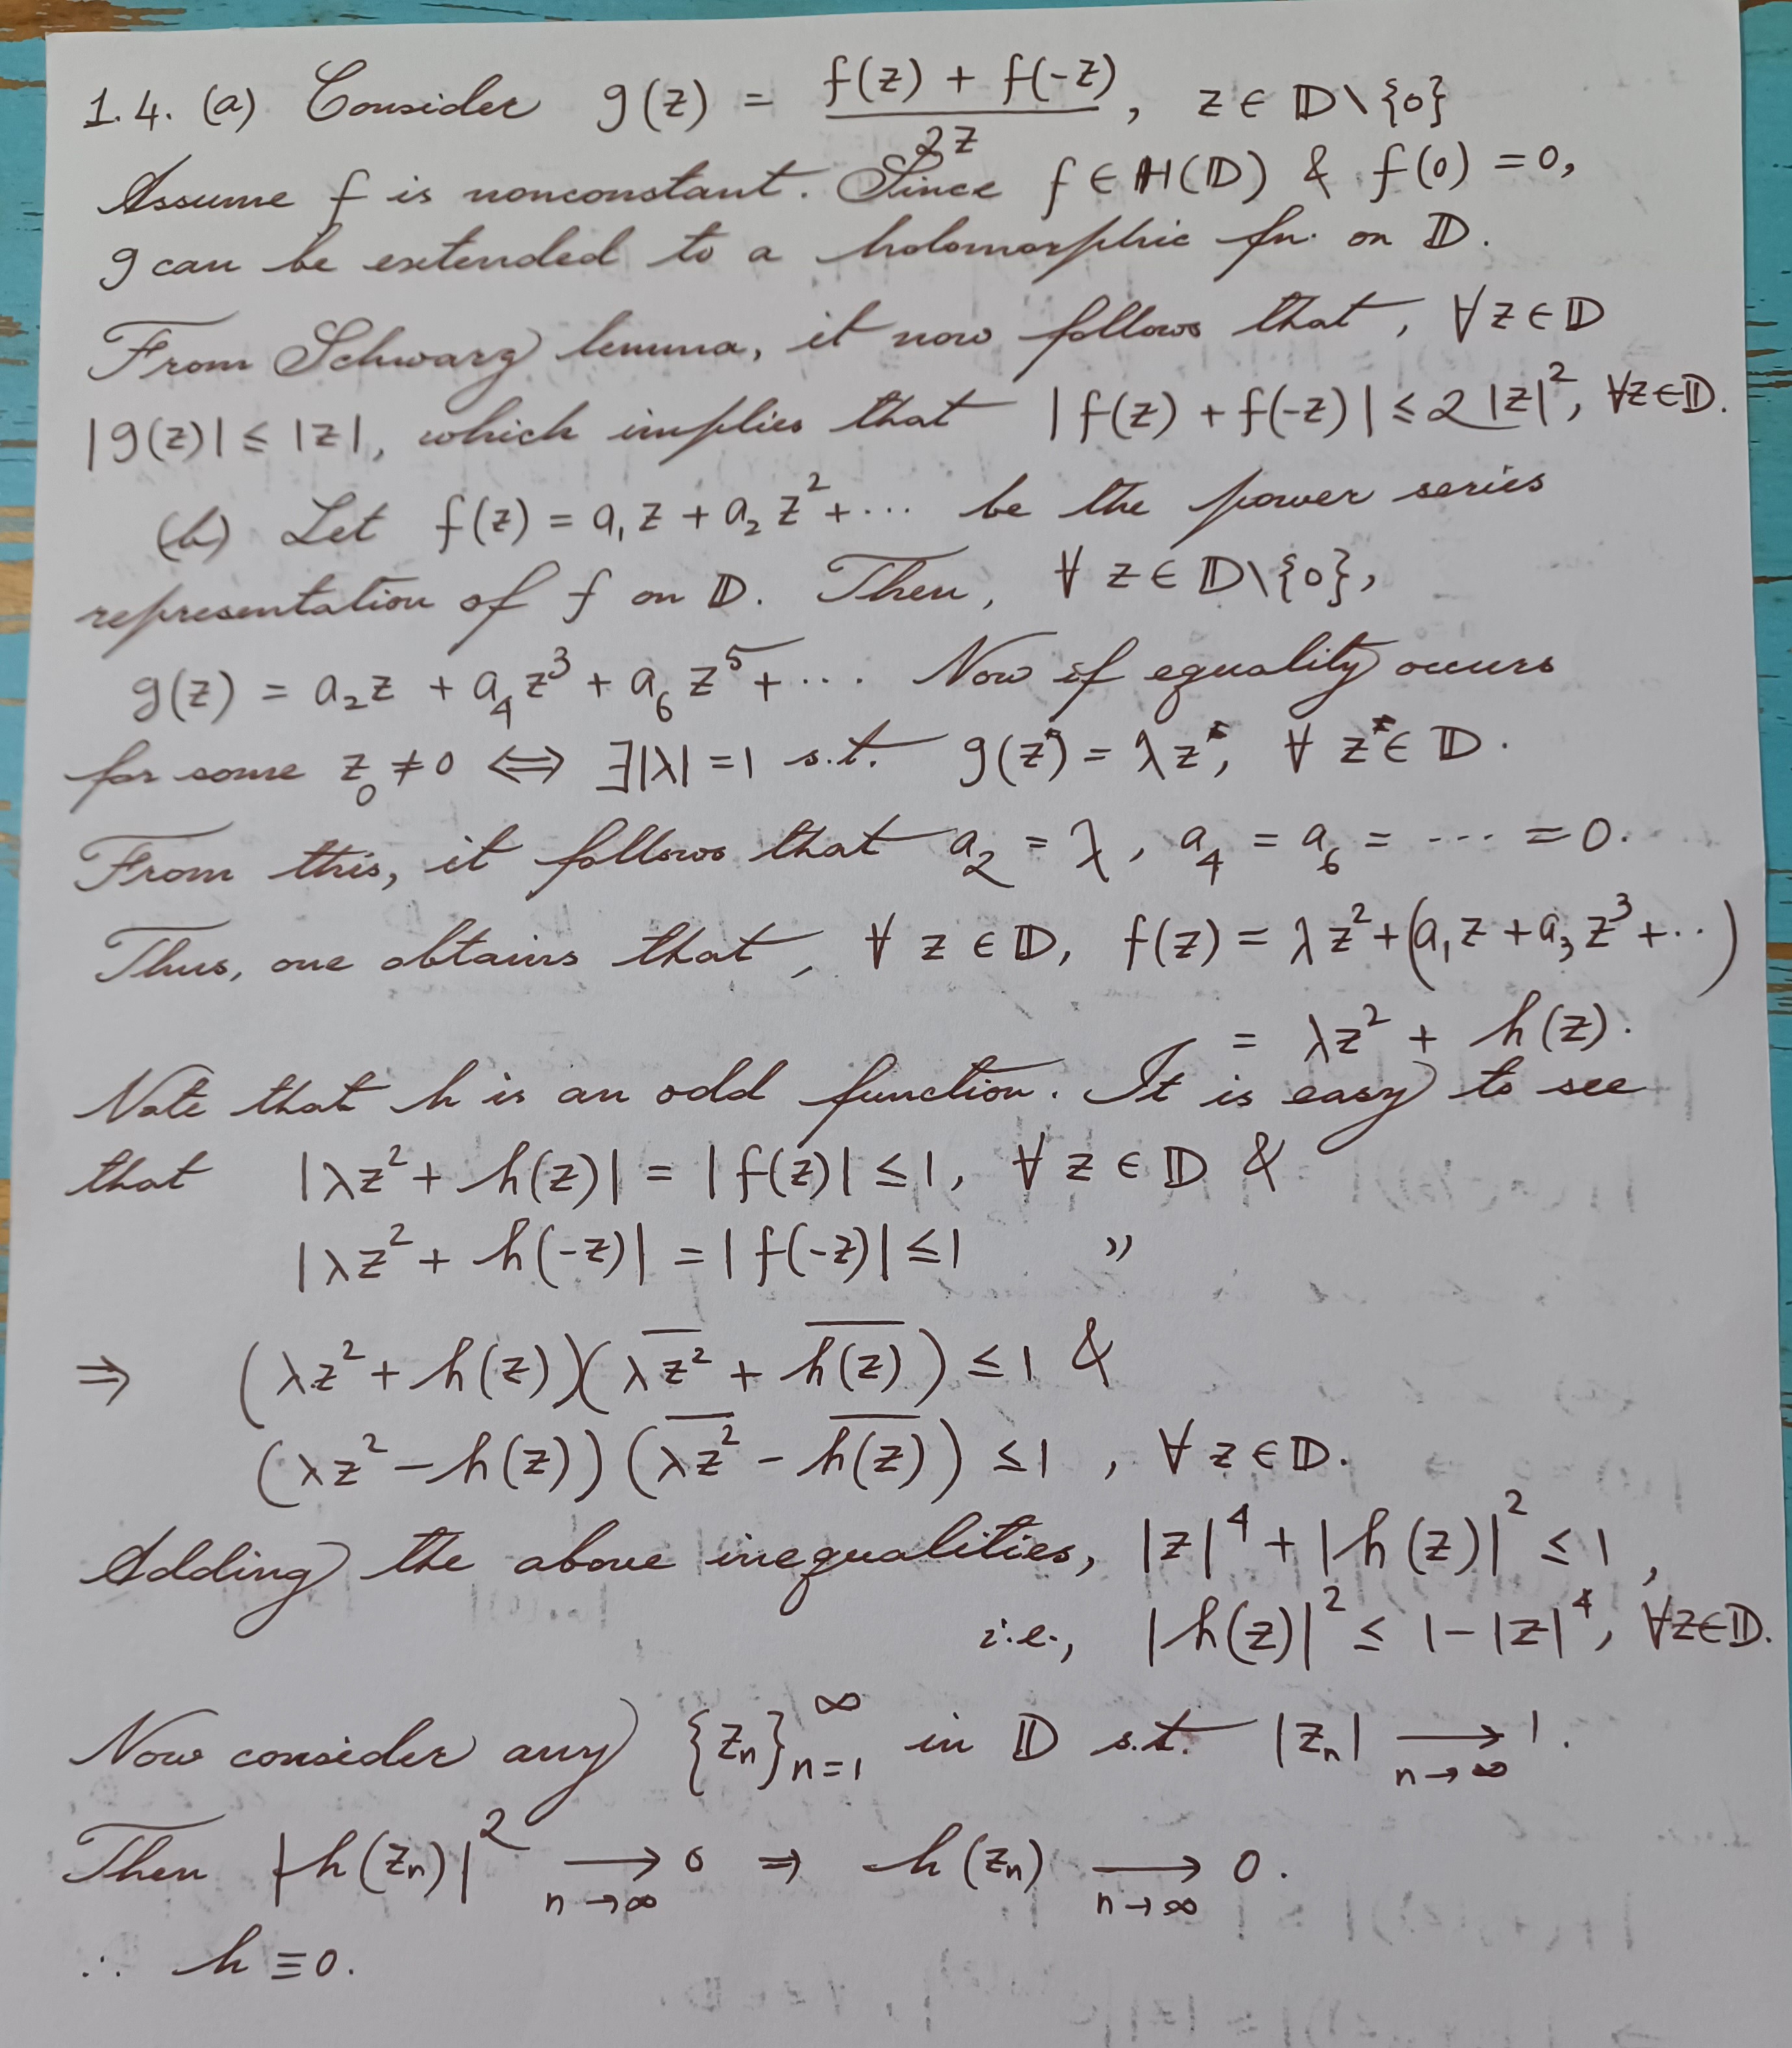 1.4. (a) Consider g(z) = (f(z) + f(-z))/2z, z ∈ 𝔻\{0}
Assume f is nonconstant. Since f ∈ H(𝔻) & f(0) = 0,
g can be extended to a holomorphic fn. on 𝔻.
From Schwarz lemma, it now follows that, ∀ z ∈ 𝔻
|g(z)| ≤ |z|, which implies that |f(z) + f(-z)| ≤ 2|z|², ∀z∈𝔻.
(b) Let f(z) = a₁z + a₂z² + ... be the power series
representation of f on 𝔻. Then, ∀ z ∈ 𝔻\{0},
g(z) = a₂z + a₄z³ + a₆z⁵ + ... Now if equality occurs
for some z₀ ≠ 0 ⟺ ∃|λ| = 1 s.t. g(z) = λz, ∀ z ∈ 𝔻.
From this, it follows that a₂ = λ, a₄ = a₆ = --- = 0.
Thus, one obtains that, ∀ z ∈ 𝔻, f(z) = λz² + (a₁z + a₃z³ + ...)
= λz² + h(z).
Note that h is an odd function. It is easy to see
that |λz² + h(z)| = |f(z)| ≤ 1, ∀ z ∈ 𝔻 &
|λz² + h(-z)| = |f(-z)| ≤ 1 "
⇒ (λz² + h(z))(λ\overline{z²} + \overline{h(z)}) ≤ 1 &
(λz² - h(z))(\overline{λz²} - \overline{h(z)}) ≤ 1, ∀ z ∈ 𝔻.
Adding the above inequalities, |z|⁴ + |h(z)|² ≤ 1,
i.e., |h(z)|² ≤ 1 - |z|⁴, ∀z∈𝔻.
Now consider any {zₙ}_{n=1}^∞ in 𝔻 s.t. |zₙ| ⟶_{n→∞} 1.
Then |h(zₙ)|² ⟶_{n→∞} 0 ⇒ h(zₙ) ⟶_{n→∞} 0.
∴ h ≡ 0.